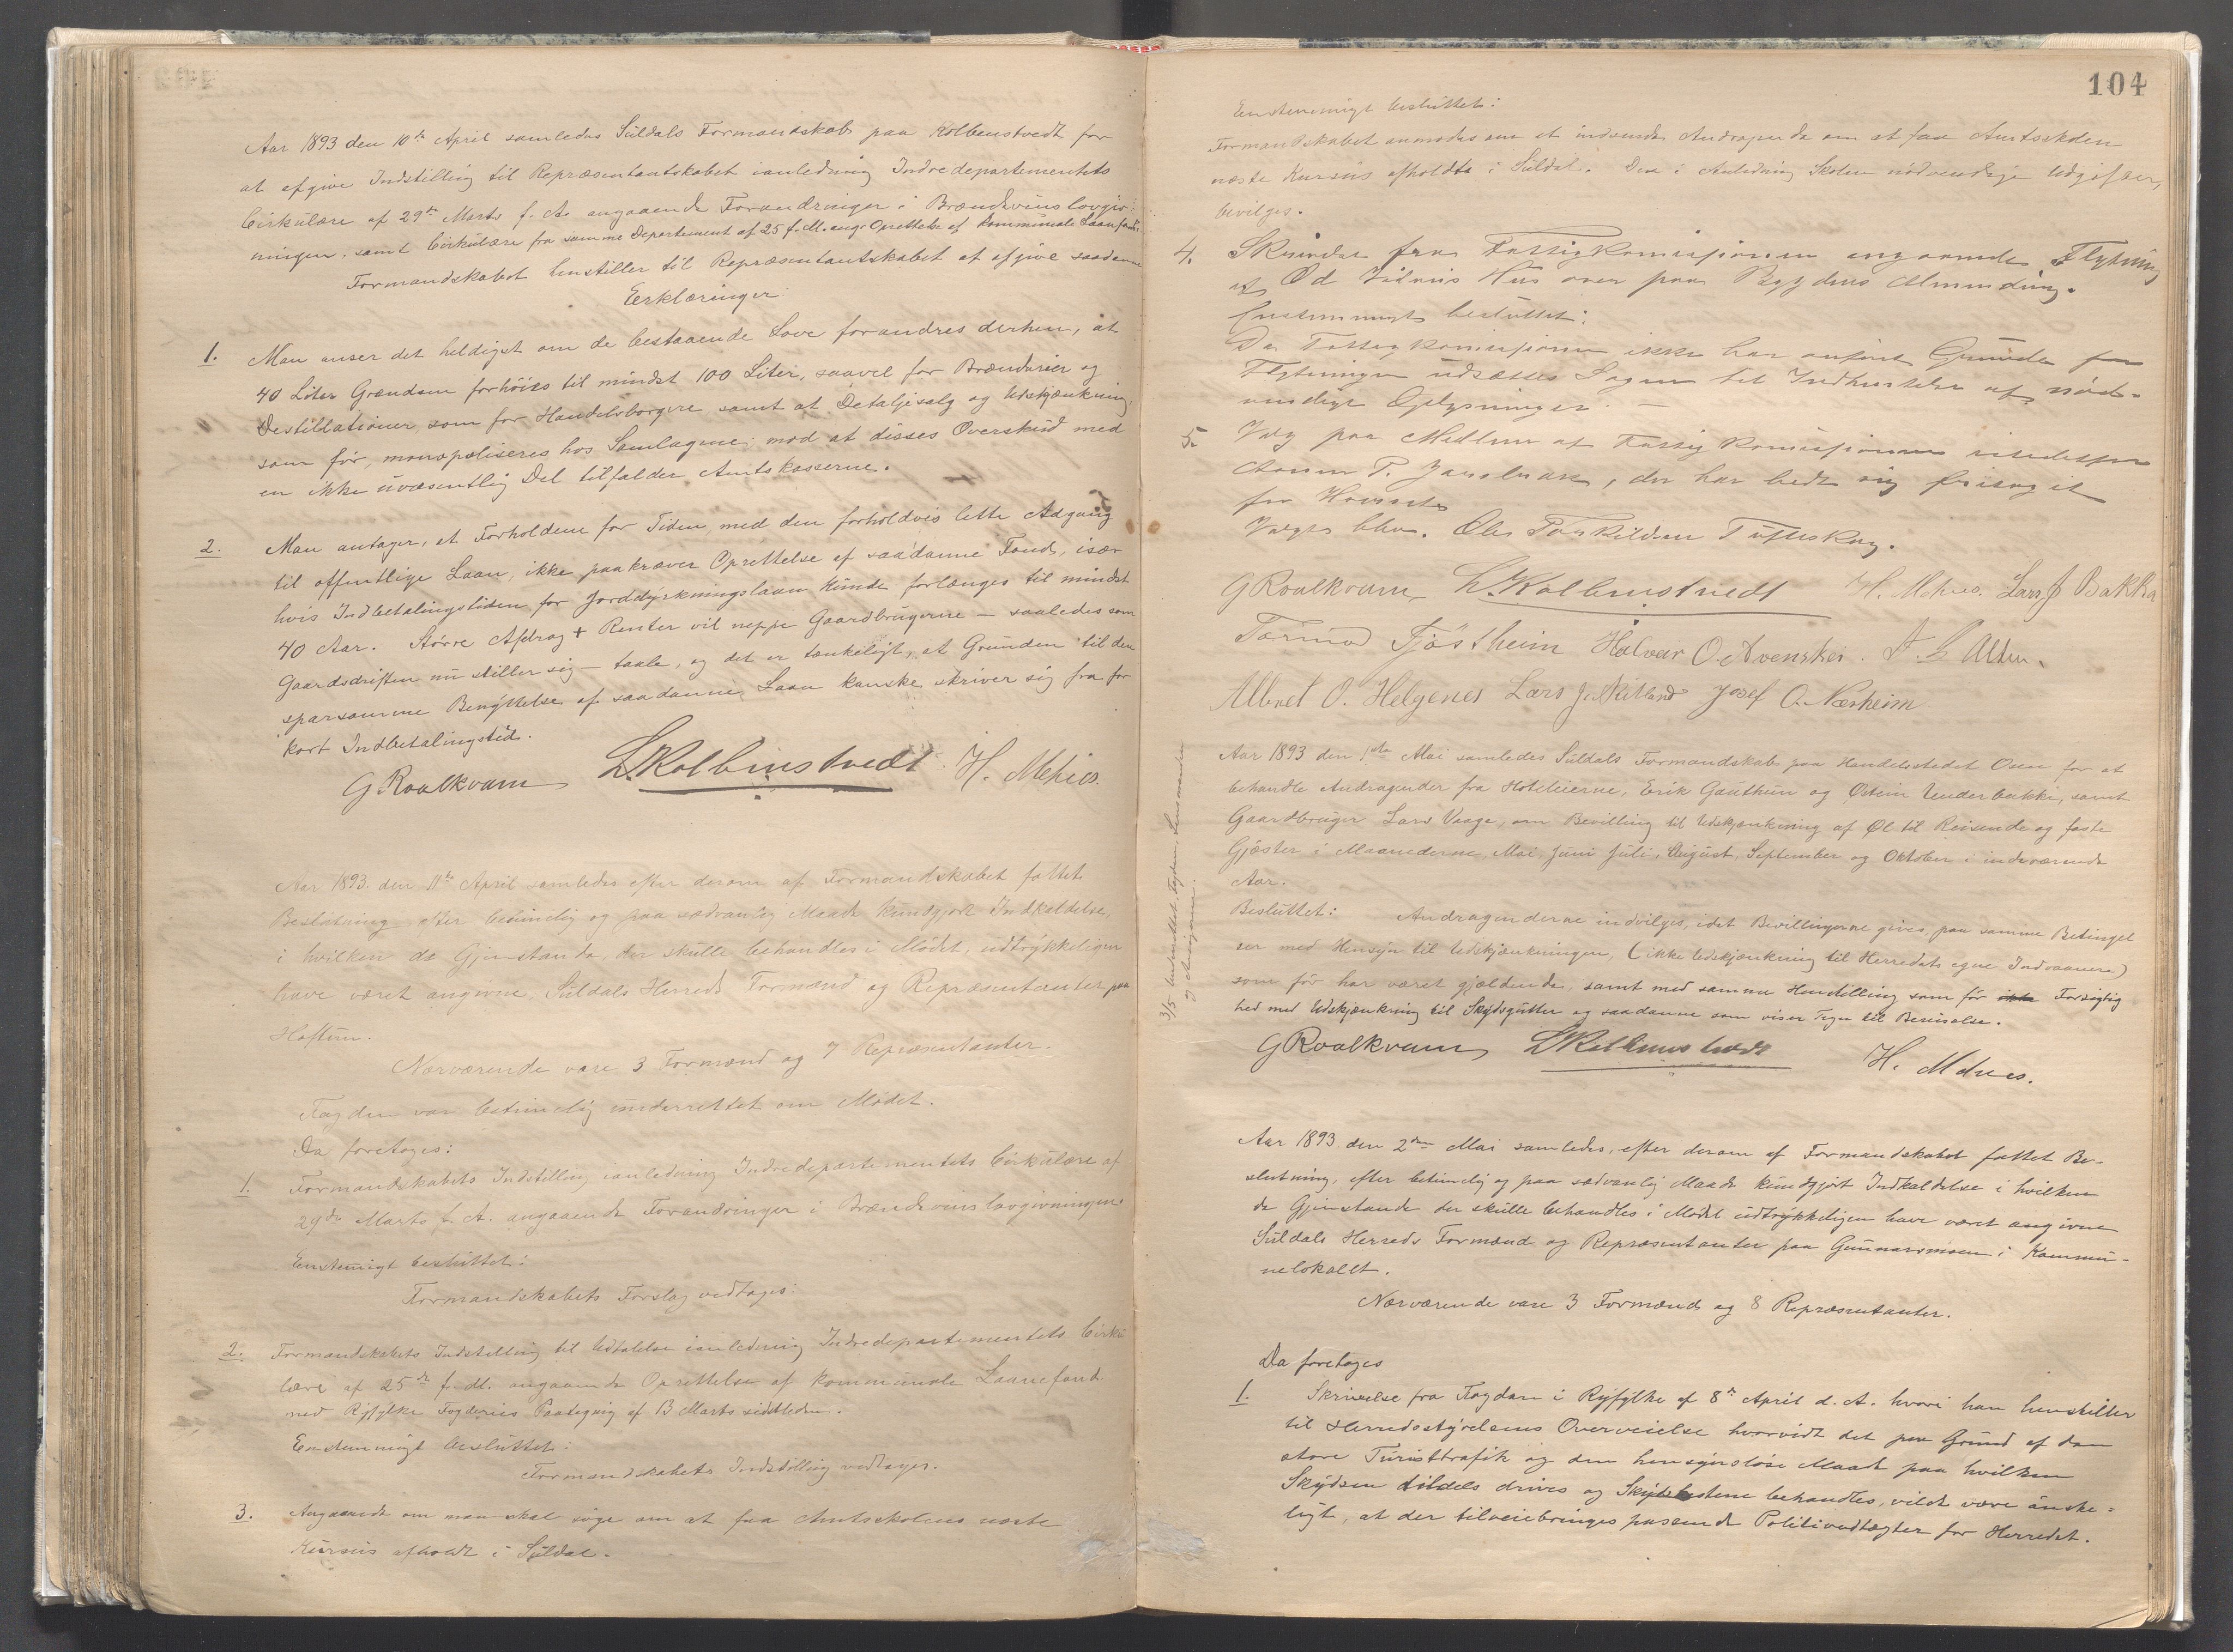 Aar 1893 den 10de April samledes Suldals Formandskab paa Kolbenstvedt for
at afgive Indstilling til Repræsentantskabet ianledning Indredepartementets
Cirkulære af 29de Marts f. A. angaaende Forandringer i Brændevinslovgiv-
ningen, samt Cirkulære fra samme Departement af 25 f. M. ang. Oprettelse af kommunale Laanefonds.
Formandskabet henstiller til Repræsentantskabet at afgive saadanne
Erklæringer:
1. Man anser det heldigst om de bestaaende Love forandres derhen, at
40 Liter Grændsen forhöies til mindst 100 Liter, saavel for Brænderier og
Destillationer, som for Handelsborgere samt at Detaljesalg og Udskjænkning,
som för, monopoliseres hos Samlagene, mod at disses Overskud med
en ikke uvæsentlig Del tilfalder Amtskasserne.
2. Man antager, at Forholdene for Tiden, med den forholdvis lette Adgang
til offentlige Laan, ikke paakræver Oprettelse af saadanne Fond, især
hvis Indbetalingstiden for Jorddyrkningslaan kunde forlænges til mindst
40 Aar. Större Afdrag + Renter vil neppe Gaardbrugerne – saaledes som
Gaardsdriften nu stiller sig – taale, og det er tænkeligt, at Grunden til den
sparsomme Benyttelse af saadanne Laan kanske skriver sig fra for
kort Indbetalingstid.
G Roalkvam L. Kolbenstvedt. H. Mehus.
Aar 1893 den 11te April samledes efter derom af Formandskabet fattet
Beslutning, efter betimelig og paa sædvanlig Maade kundgjort Indkaldelse,
i hvilken de Gjenstande, der skulle behandles i Mödet, udtrykkeligen
have været angivne, Suldals Herreds Formænd og Repræsentanter paa
Haftun.
Nærværende vare 3 Formænd og 7 Repræsentanter.
Fogden var betimelig underrettet om Mödet.
Da foretoges:
1. Formandskabets Indstilling ianledning Indredepartementets Cirkulære af
29de Marts f. A. angaaende Forandringer i Brændevinslovgivningen.
Enstemigt besluttet:
Formandskabets Forslag vedtages:
2. Formandskabets Indstilling til Udtalelse ianledning Indredepartementets Cirku
lære af 25de f. M. angaaende Oprettelse af kommunale Laanefond
med Ryfylke Fogderies Paategnig af 13 Marts sidstleden.
Enstemmigt besluttet:
Formandskabets Indstilling vedtages.
3. Angaaende om man skal söge om at faa Amtsskolens næste
Kursus afholdt i Suldal.
104
Enstemmigt besluttet:
Formandskabet anmodes om at indsende Andragende om at faa Amtsskolen
næste Kursus afholdte i Suldal. De i Anledning Skolen nödvendige Udgifter,
bevilges.
4. Skrivelse fra Fattigkomissionen angaaende Flytning
af Od Hus over paa Bygdens Almending.
Enstemmigt besluttet:
Da Fattigkomissionen ikke har anfört Grunde for
Flytningen udsættes Sagen til Indhentelse af nöd-
vendige Oplysninger. –
5. Valg paa Medlem af Fattigkomissionen istedetfor
P. , der har bedt sig frisaget
for Hvervet.
Valgt blev. Ole Torkildsen Tufteskog.
G Roalkvam, L. Kolbenstvedt H. Mehus. Lars J Bakka
Tormod Fjöstheim Halvar O. Avenskei.
Albret O. Helgenes Lars J. Josef O. Nærheim
Aar 1893 den 1ste Mai samledes Suldals Formandskab paa Handelsstedet Osen for at
behandle Andragender fra Hoteleierne, Erik Gauthun og Östein Underbakke, samt
Gaardbruger Lars Vaage, om Bevilling til Udskjænkning af Öl til Reisende og faste
Gjæster i Maanederne Mai, Juni Juli, August, September og Oktober i indeværende
Aar.
Besluttet: Andragenderne indvilges, idet Bevillingerne gives paa samme Betingel
ser med Hensyn til Udskjænkningen, (ikke Udskjænkning til Herredets egne Indvaanere)
som för har været gjældende, samt med samme Henstilling som för Forsigtig
hed med Udskjænkning til Skydsgutter og saadanne som viser Tegn til Beruselse.
3/5 Underrettet Fogden, Lensmanden
og Ansögerne.
G Roalkvam L Kolbenstvedt H. Mehus.
Aar 1893 den 2den Mai samledes, efter derom af Formandskabet fattet Be-
slutning, efter betimelig og paa sædvanlig Maade kundgjort Indkaldelse i hvilken
de Gjenstande der skulle behandles i Mödet udtrykkeligen have været angivne
Suldals Herreds Formænd og Repræsentanter paa Gunnarsmoen i Kommu-
nelokalet.
Nærværende vare 3 Formænd og 8 Repræsentanter.
Da foretoges
1. Skrivelse fra Fogden i Ryfylke af 8de April d. A. hvori han henstiller
til Herredsstyrelsens Overveielse hvorvidt det paa Grund af den
store Turisttrafik og den hensynslöse Maade paa hvilken
Skydsen tildels drives og Skydshestene behandles, vilde være önske-
ligt, at der tilveiebringes passende Politivedtægter for Herredet.